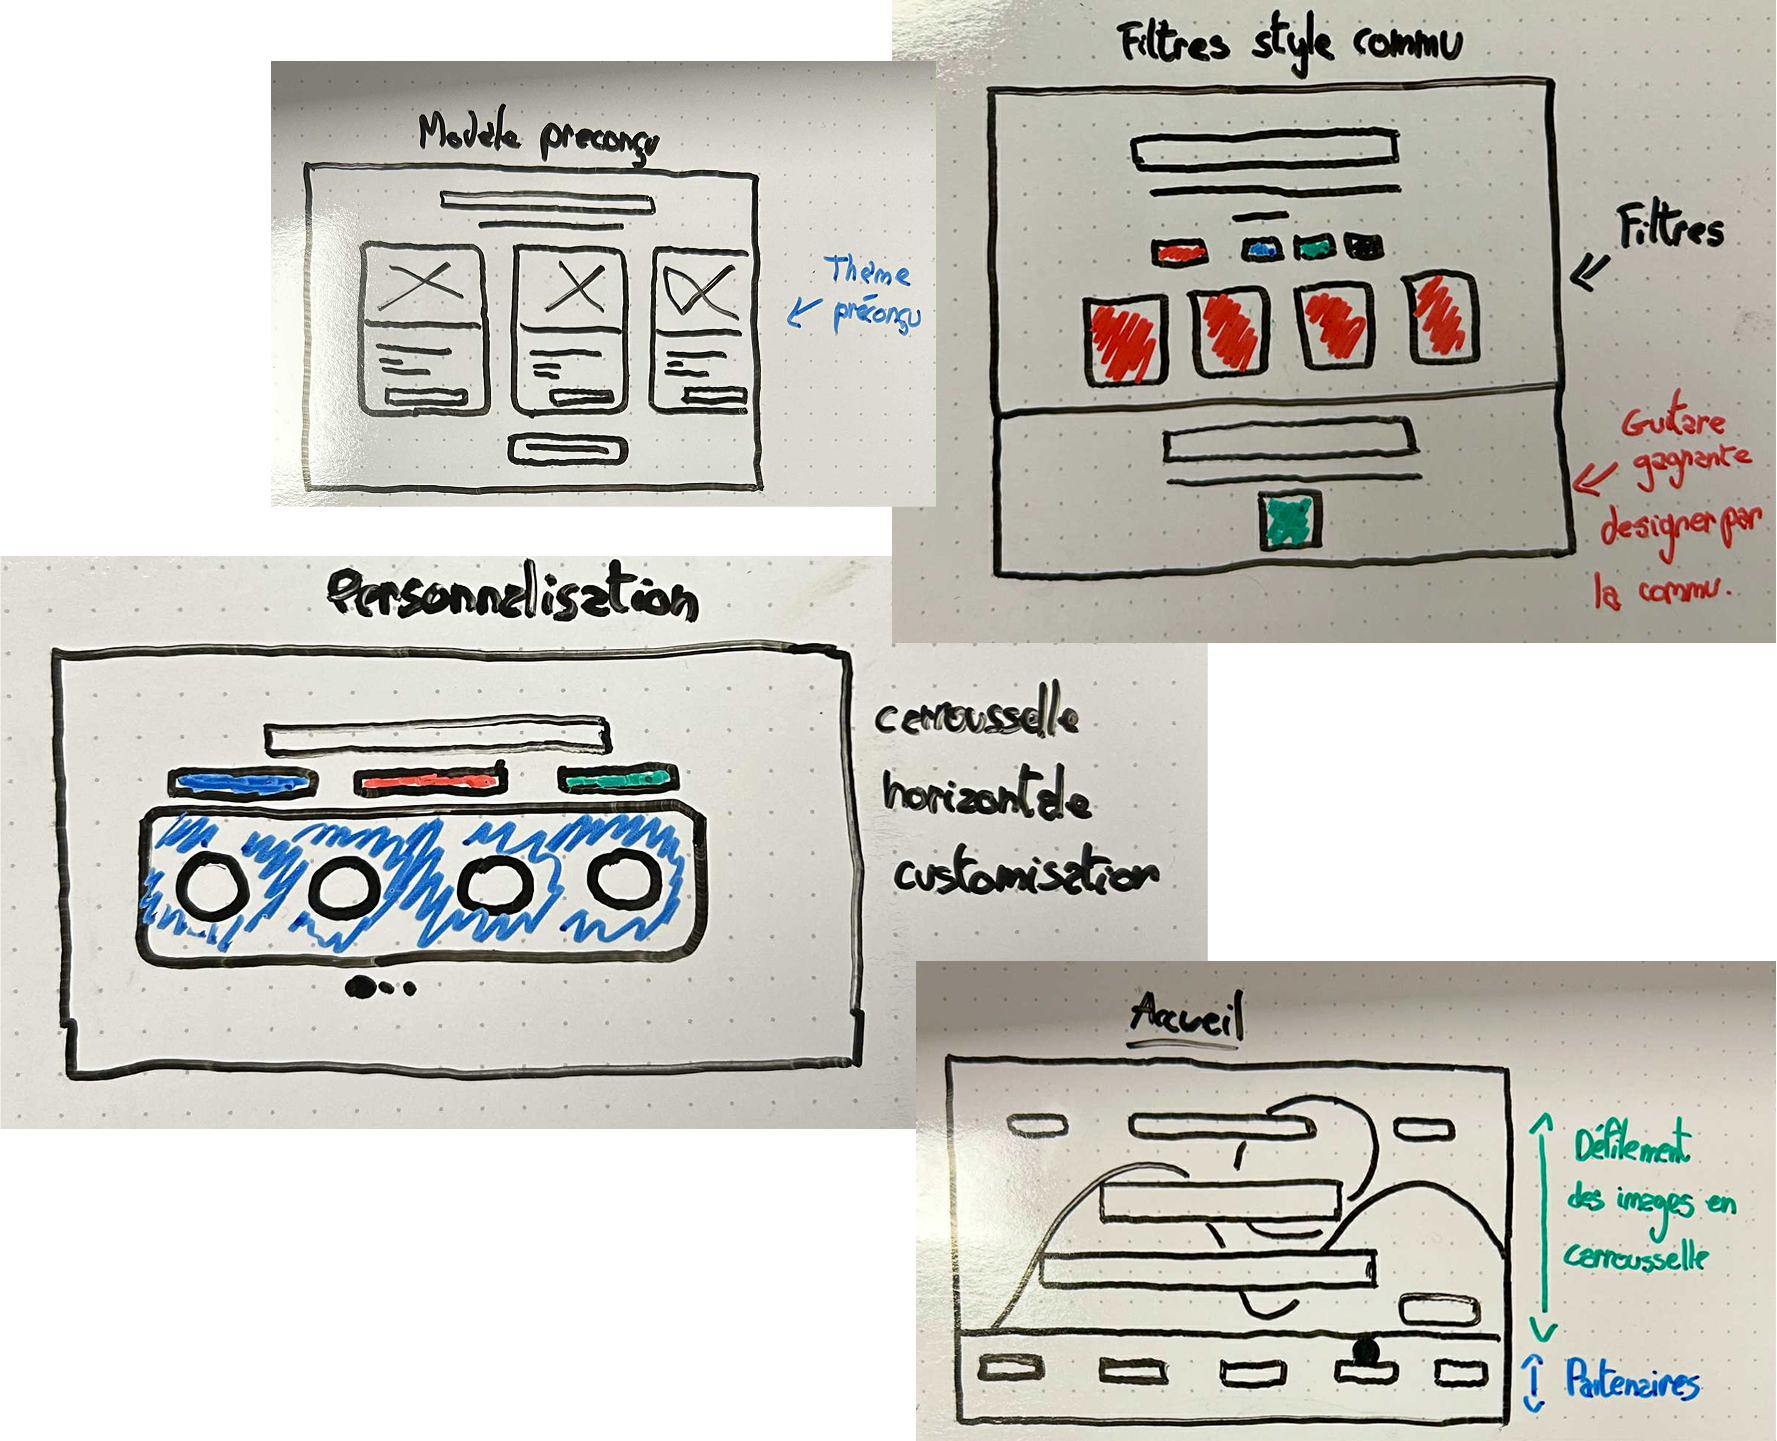 Modèle preconçu
Thème
préconçu
Filtres style commu
Filtres
Guitare
gagnante
designer par
la commu.
Personnalisation
carrousselle
horizontale
customisation
Accueil
Défilement
des images en
carrousselle
Partenaires